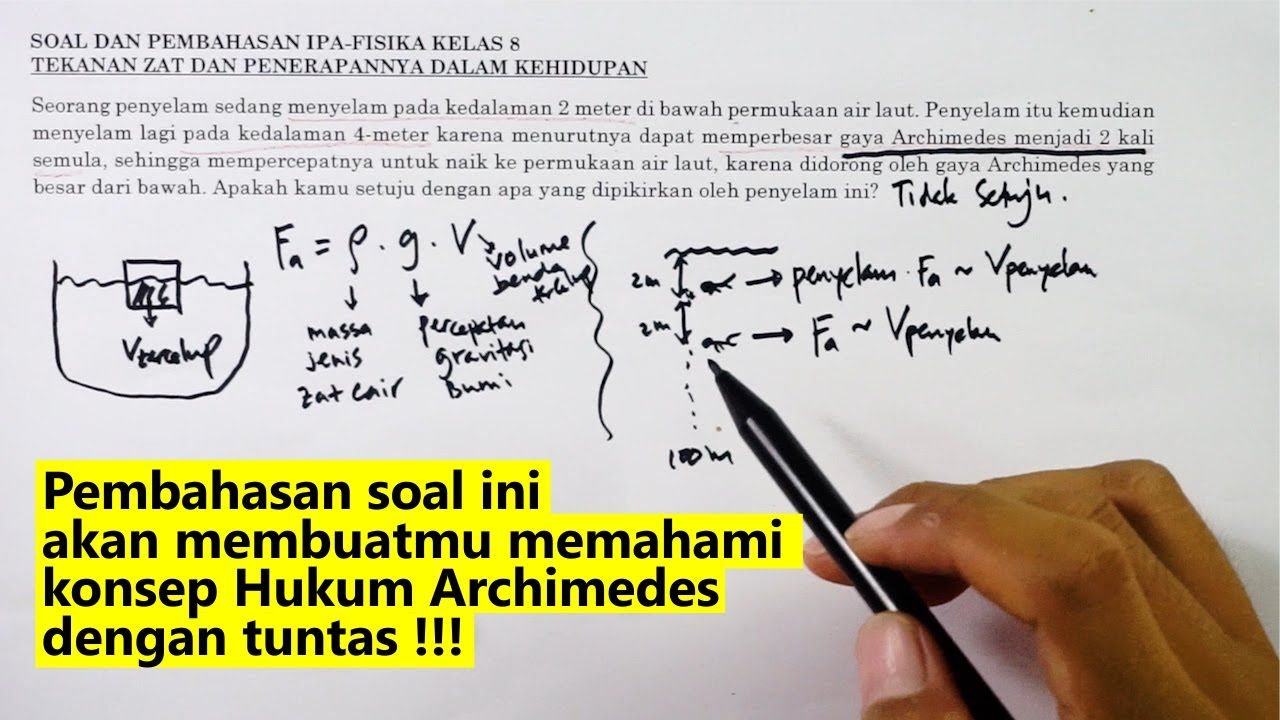 SOAL DAN PEMBAHASAN IPA-FISIKA KELAS 8
TEKANAN ZAT DAN PENERAPANNYA DALAM KEHIDUPAN
Seorang penyelam sedang menyelam pada kedalaman 2 meter di bawah permukaan air laut. Penyelam itu kemudian
menyelam lagi pada kedalaman 4-meter karena menurutnya dapat memperbesar gaya Archimedes menjadi 2 kali
semula, sehingga mempercepatnya untuk naik ke permukaan air laut, karena didorong oleh gaya Archimedes yang
besar dari bawah. Apakah kamu setuju dengan apa yang dipikirkan oleh penyelam ini? Tidak Setuju.
Fa = ρ . g . V
volume
benda
tercelup
massa
jenis
zat cair
percepatan
gravitasi
Bumi
Vtercelup
2m
penyelam . Fa ~ Vpenyelam
2m
Fa ~ Vpenyelam
100 m
Pembahasan soal ini
akan membuatmu memahami
konsep Hukum Archimedes
dengan tuntas !!!